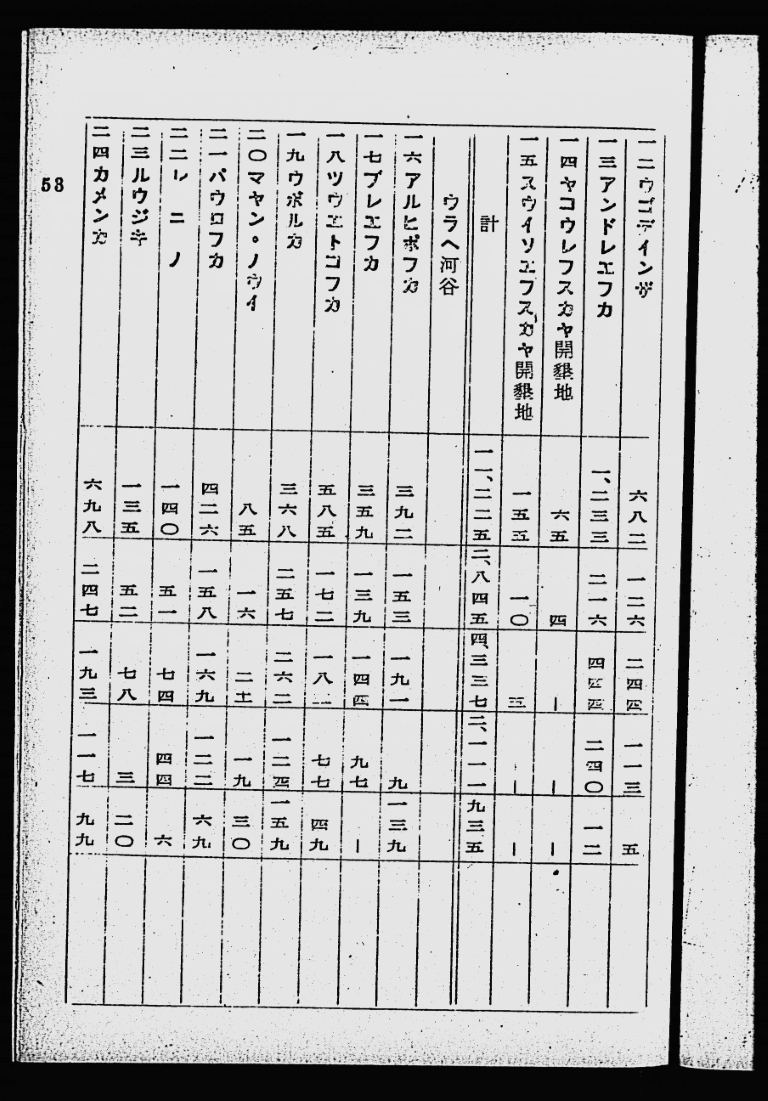 一二ウゴデインザ 六八二 一二六 二四四 一一三 五
一三アンドレエフカ 一、二三三 二一六 四四四 二四〇 一二
一四ヤコウレフスカヤ開墾地 六五 四 ― ― ―
一五スウイソエフスカヤ開墾地 一五五 一〇 三 ― ―
計 一一、二二五 二、八四五 四、三三七 二、一一一 九三五
ウラヘ河谷
一六アルヒポフカ 三九二 一五三 一九一 九 一三九
一七ブレエフカ 三五九 一三九 一四四 九七 ―
一八ツウエトコフカ 五八五 一七二 一八二 七七 四九
一九ウボルカ 三六八 二五七 二六二 一二四 一五九
二〇マヤン・ノウイ 八五 一六 二七 一九 三〇
二一パウロフカ 四二六 一五八 一六九 一二二 六九
二二レニノ 一四〇 五一 七四 四四 六
二三ルウジキ 一三五 五二 七八 三 二〇
二四カメンカ 六九八 二四七 一九三 一一七 九九
53